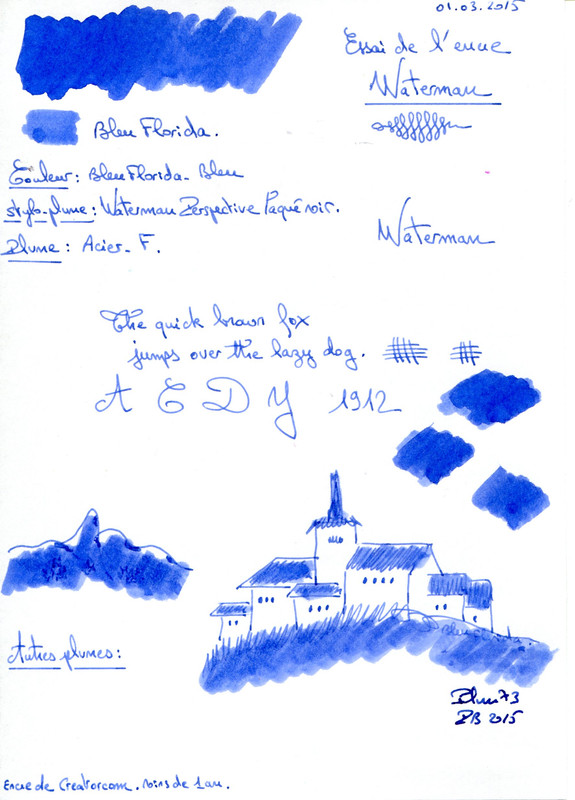 01.03.2015
Essai de l'encre
Waterman
Bleu Florida.
Couleur : Bleu Florida - Bleu
stylo-plume : Waterman Perspective Laqué noir.
Plume : Acier - F.
Waterman
The quick brown fox
jumps over the lazy dog.
A E D Y 1912
Autres plumes :
PB 2015
Encre de Creatorcom. Moins de 1 an.